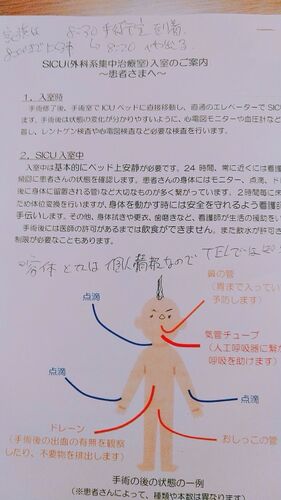 家族は 8:30 手術室 到着
8:20
SICU(外科系集中治療室)入室のご案内
～患者さまへ～
1. 入室時
手術終了後、手術室でICUベッドに直接移動し、直通のエレベーターでSIC
ます。手術後は状態の変化が分かりやすいように、心電図モニターや血圧計など
着し、レントゲン検査や心電図検査など必要な検査を行います。
2. SICU入室中
入室中は基本的にベッド上安静が必要です。24時間、常に近くには看護
頻回に患者さんの状態を確認します。患者さんの身体にはモニター、点滴、ド
後に身体に留置される管)など大切なものが多く繋がっています。2時間毎に床
ため体位変換を行いますが、身体を動かす時には安全を守れるよう看護
手伝いします。その他、身体拭きや更衣、歯磨きなど、看護師が生活の援助をい
手術後には医師の許可があるまでは飲食ができません。また飲水が許可さ
制限が必要なこともあります。
容体 とかは 個人情報なので TELでは
鼻の管
(胃まで入ってい
予防します)
点滴
気管チューブ
(人工呼吸器に繋が
呼吸を助けます)
点滴
点滴
ドレーン
(手術後の出血の有無を観察
したり、不要物を排出します)
おしっこの管
手術の後の状態の一例
(※患者さんによって、種類や本数は異なります)